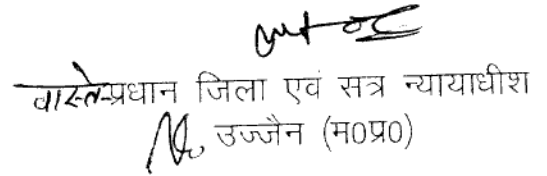 वास्ते-प्रधान जिला एवं सत्र न्यायाधीश
उज्जैन (म0प्र0)